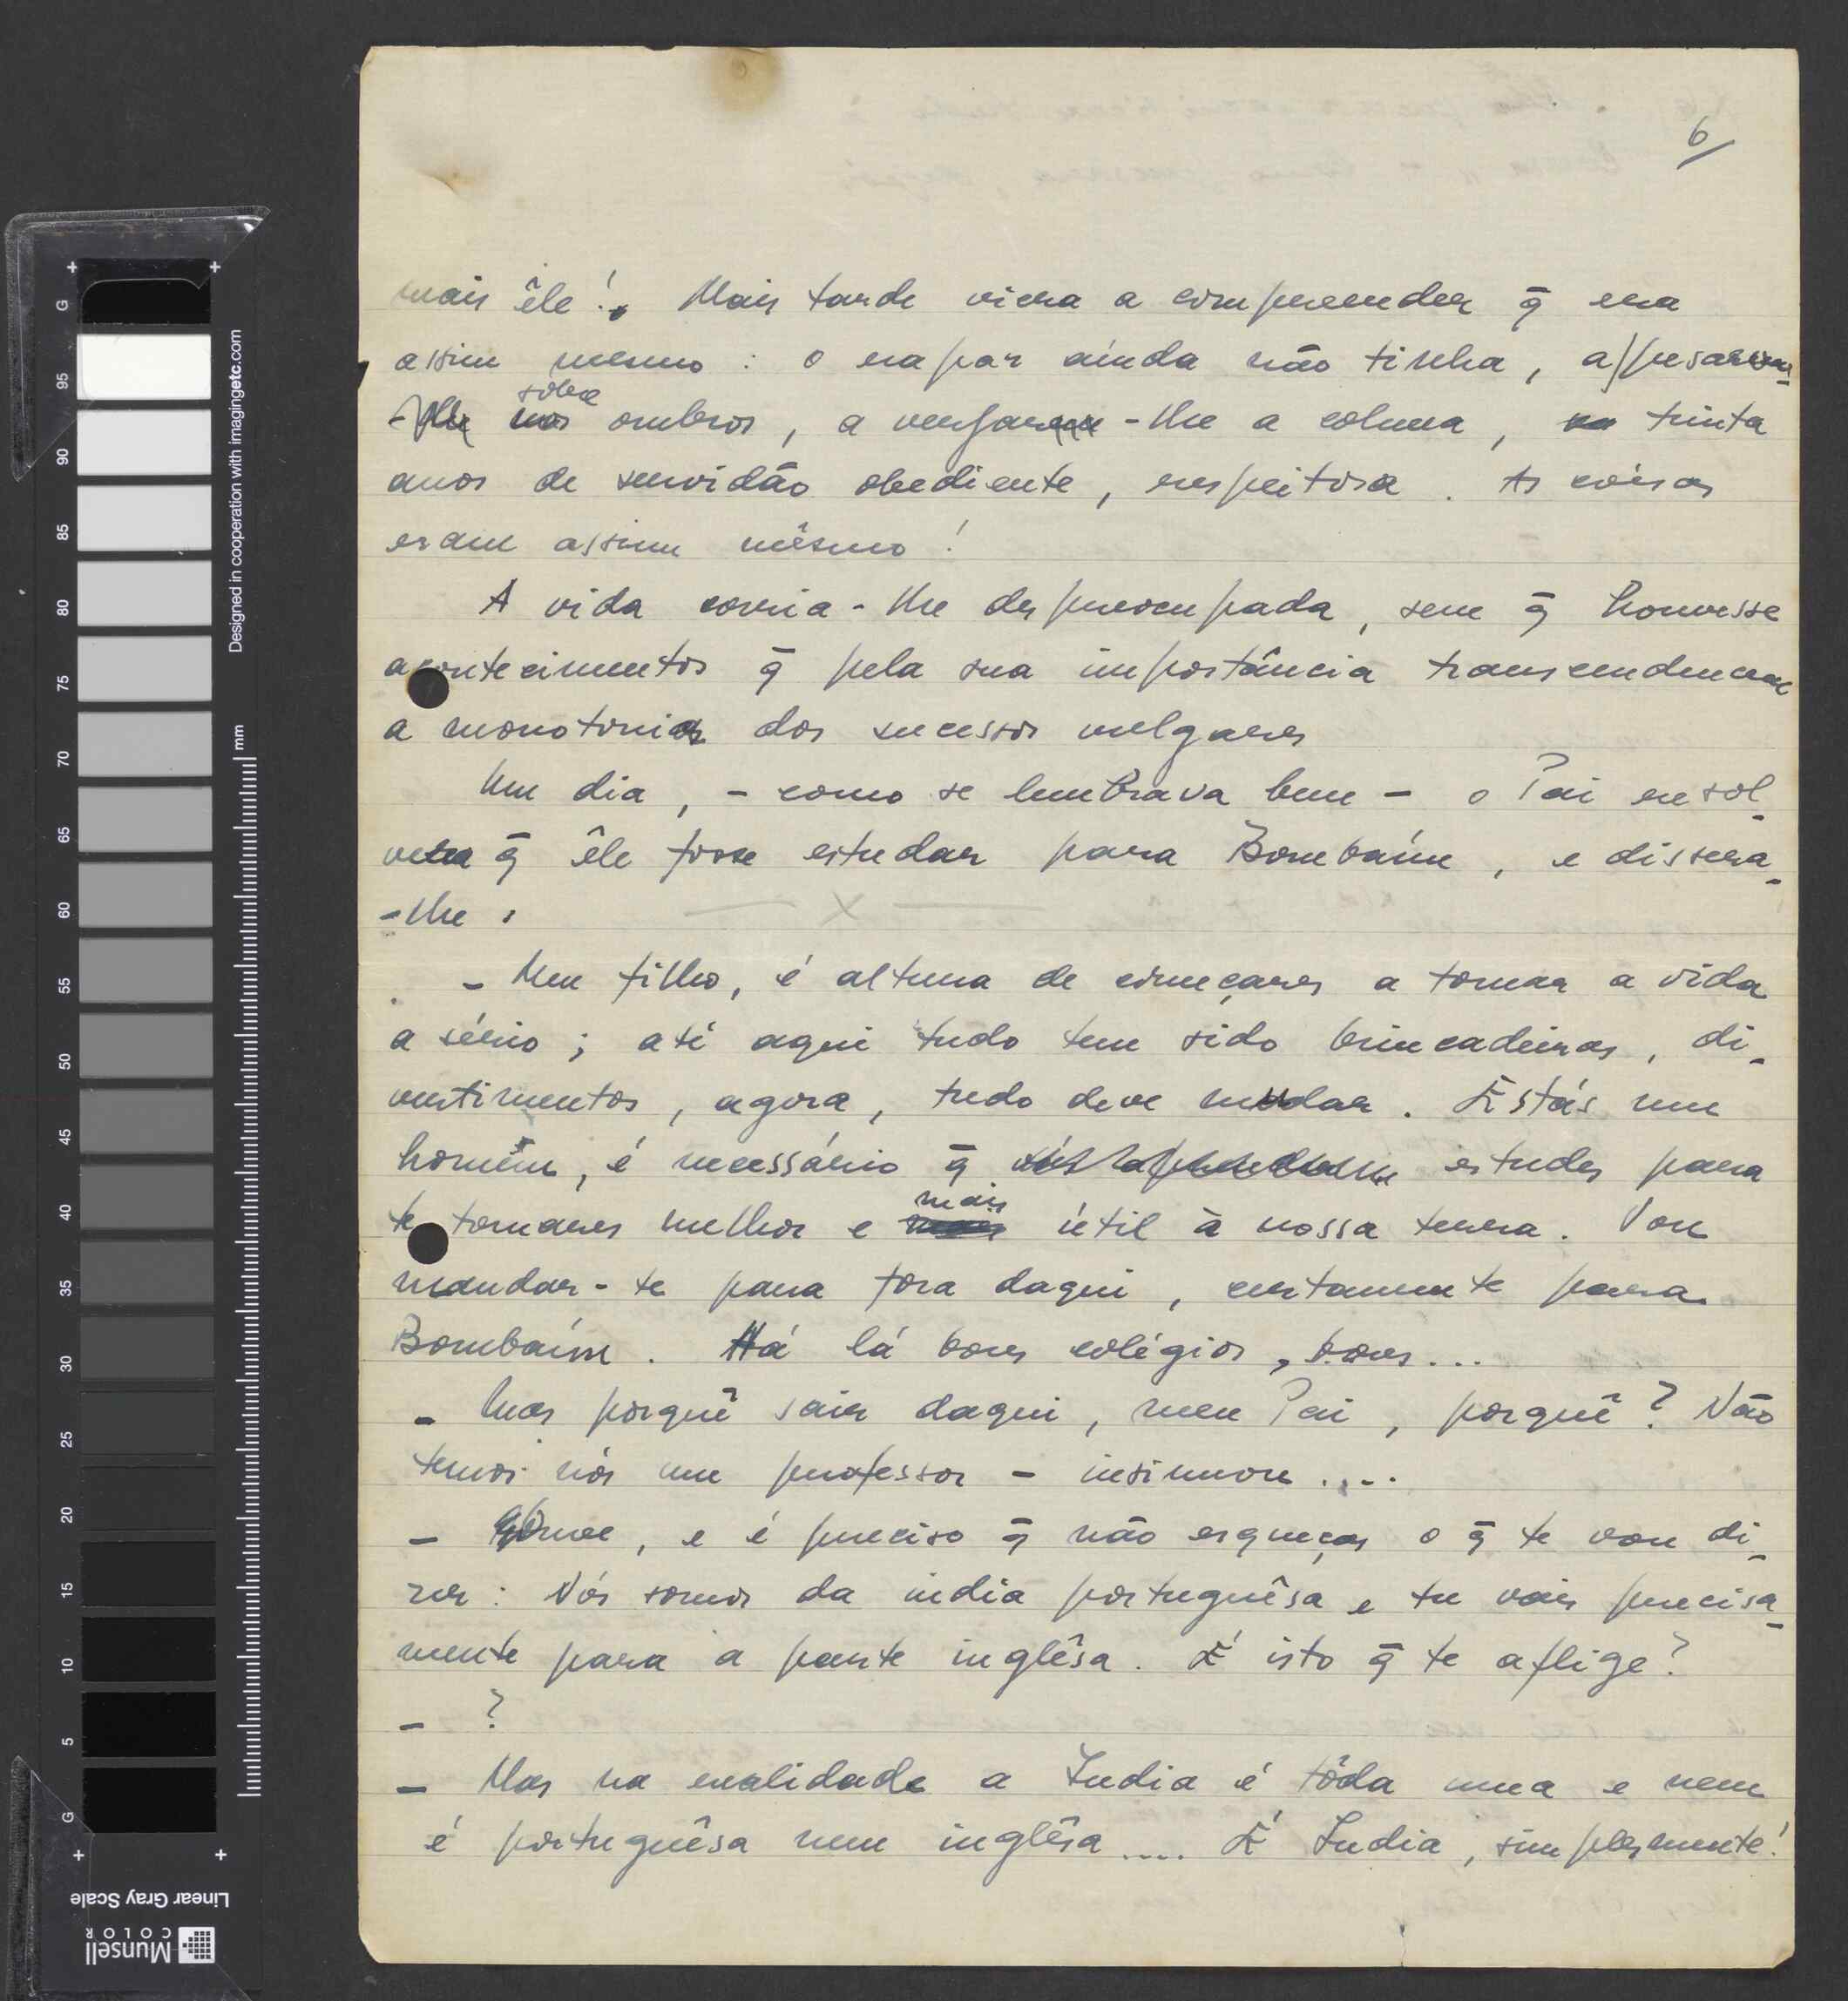 6/
mais êle! Mais tarde viera a compreender q̄ era
assim mesmo : o rapaz ainda não tinha, a pesarem-
-lhe sôbre ombros, a vergar-lhe a coluna, trinta
anos de servidão obediente, respeitosa. As coisas
eram assim mêsmo!
A vida corria-lhe despreocupada, sem q̄ houvesse
acontecimentos q̄ pela sua importância transcendessem
a monotonia dos sucessos vulgares
Um dia, - como se lembrava bem - o Pai resol-
vera q̄ êle fosse estudar para Bombaím, e dissera-
-lhe :
- Meu filho, é altura de começares a tomar a vida
a sério; até aqui tudo tem sido brincadeiras, di-
vertimentos, agora, tudo deve mudar. Estás um
homem, é necessário q̄ estudes para
te tornares melhor e mais útil à nossa terra. Vou
mandar-te para fora daqui, certamente para
Bombaím. Há lá bons colégios, bons...
- Mas porquê sair daqui, meu Pai, porquê? Não
temos nós um professor - insinuou....
- Ouve, e é preciso q̄ não esqueças o q̄ te vou di-
zer: Nós somos da india portuguêsa e tu vais precisa-
mente para a parte inglêsa. É isto q̄ te aflige?
- ?
- Mas na realidade a India é tôda uma e nem
é portuguêsa nem inglêsa.... É India, simplesmente!
Designed in cooperation with imagingetc.com
mm
+ G 95 90 85 80 75 70 65 60 55 50 45 40 35 30 25 20 15 10 5 G +
Linear Gray Scale
Munsell
COLOR